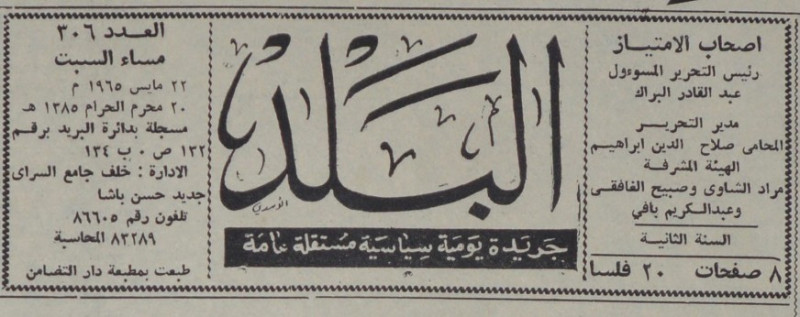 اصحاب الامتياز
رئيس التحرير المسوءول
عبد القادر البراك
مدير التحرير
المحامى صلاح الدين ابراهيم
الهيئة المشرفة
مراد الشاوى وصبيح الغافقى
وعبدالكريم يافي
السنة الثانية
٨ صفحات ٢٠ فلسا
البلد
الأسدي
جريدة يومية سياسية مستقلة عامة
العدد ٣٠٦
مساء السبت
٢٢ مايس ١٩٦٥ م
٢٠ محرم الحرام ١٣٨٥ هـ
مسجلة بدائرة البريد برقم
١٣٢ ص . ب ١٣٤
الادارة : خلف جامع السراى
جديد حسن باشا
تلفون رقم ٨٦٦٠٥
٨٣٢٨٩ المحاسبة
طبعت بمطبعة دار التضامن